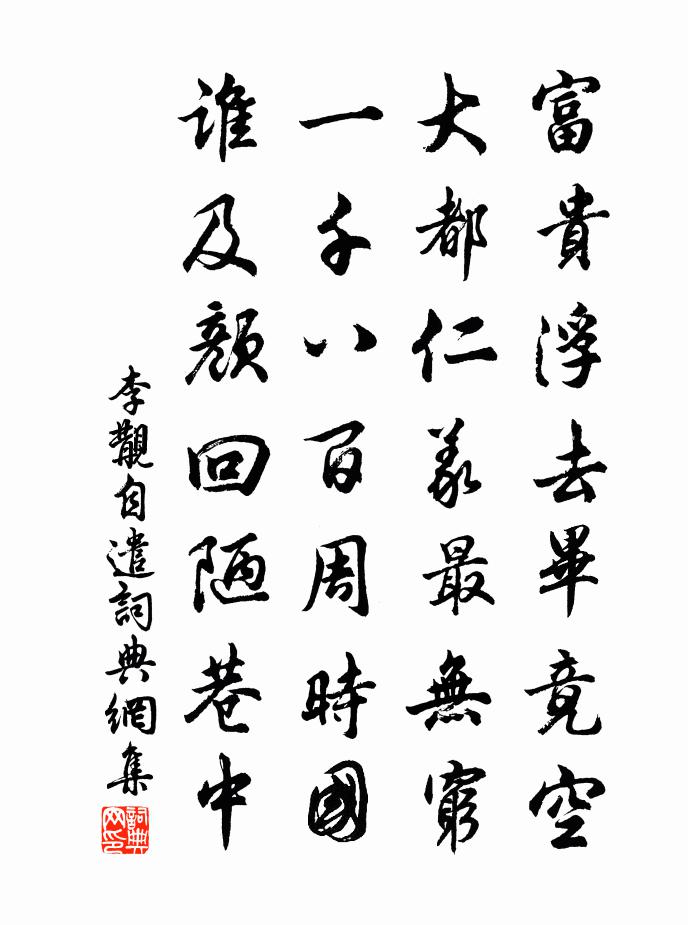 富貴浮去畢竟空
大都仁義最無窮
一千八百周時國
誰及顏回陋巷中
李觀自遣詞典網集
詞典网印